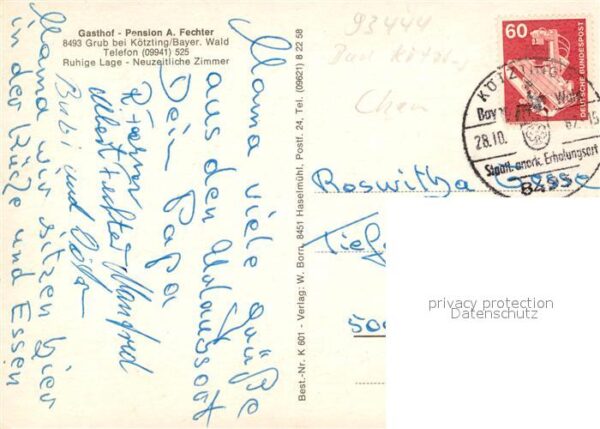 Gasthof - Pension A. Fechter
8493 Grub bei Kötzting/Bayer. Wald
Telefon (09941) 525
Ruhige Lage - Neuzeitliche Zimmer
Mama viele Grüße
aus dem Urlaubsort
Dein Papa
Albert Fechter Manfred
Bubi und
Mama wir sitzen hier
in der Küche und Essen
Best.-Nr. K 601 - Verlag: W. Born, 8451 Haselmühl, Postf. 24, Tel. (09621) 8 22 58
93444
Bad Kötz
Cham
60
DEUTSCHE BUNDESPOST
KÖTZTING
Bayer. Wald
28.10.
Staatl. anerk. Erholungsort
8493
Roswitha
Tief
500
privacy protection
Datenschutz